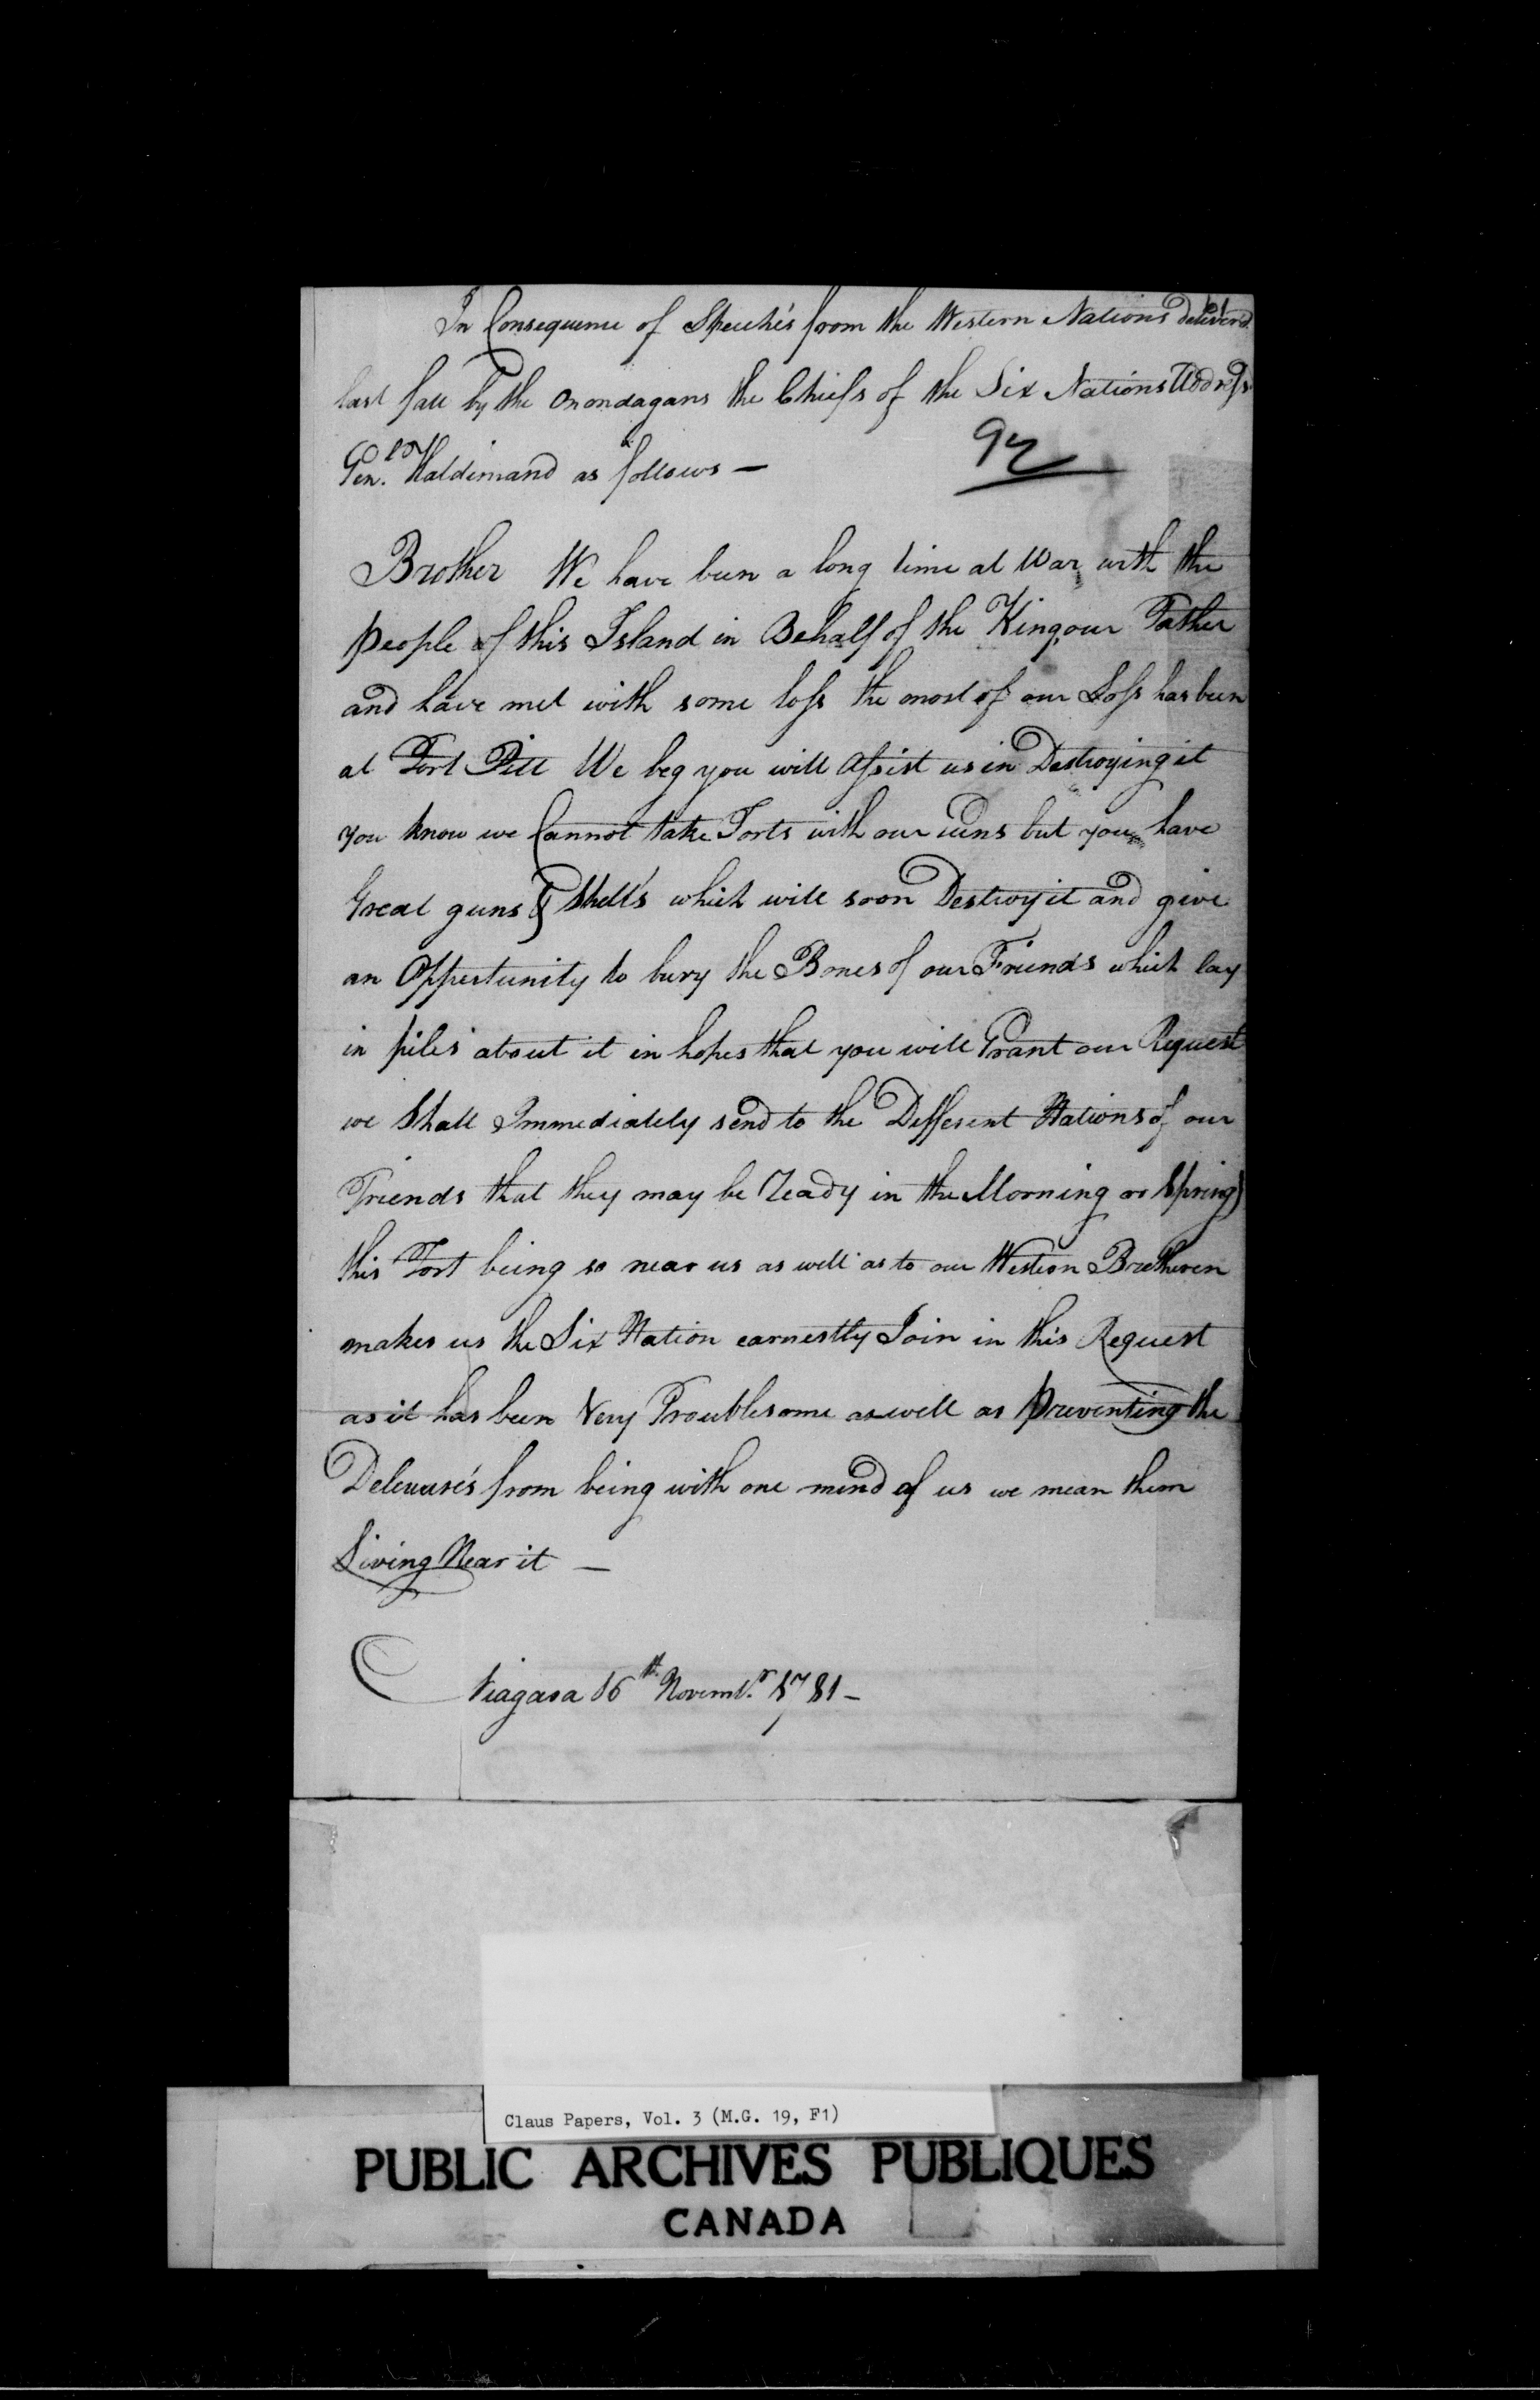 In Consequence of Speeche's from the Western Nations deliver'd
last fall by the Onondagans the Chiefs of the Six Nations Address
Gen.l Haldimand as follows —
92
Brother We have been a long time at War with the
people of this Island in Behalf of the King our Father
and have met with some loss the most of our Loss has been
at Fort Pitt We beg you will Assist us in Destroying it
you know we Cannot take Forts with our guns but you have
Great guns & Shell's which will soon Destroy it and give
an Oppertunity to bury the Bones of our Friends which lay
in piles about it in hopes that you will Grant our Request
we Shall Immediately send to the Different Nations of our
Friends that they may be Ready in the Morning or Spring
this Fort being so near us as well as to our Western Bretheren
makes us the Six Nation earnestly Join in this Request
as it has been Very Troublesome as well as preventing the
Deleware's from being with one mind of us we mean them
Living Near it —
Niagara 16th Novemb.r 1781 —
Claus Papers, Vol. 3 (M.G. 19, F1)
PUBLIC ARCHIVES PUBLIQUES
CANADA